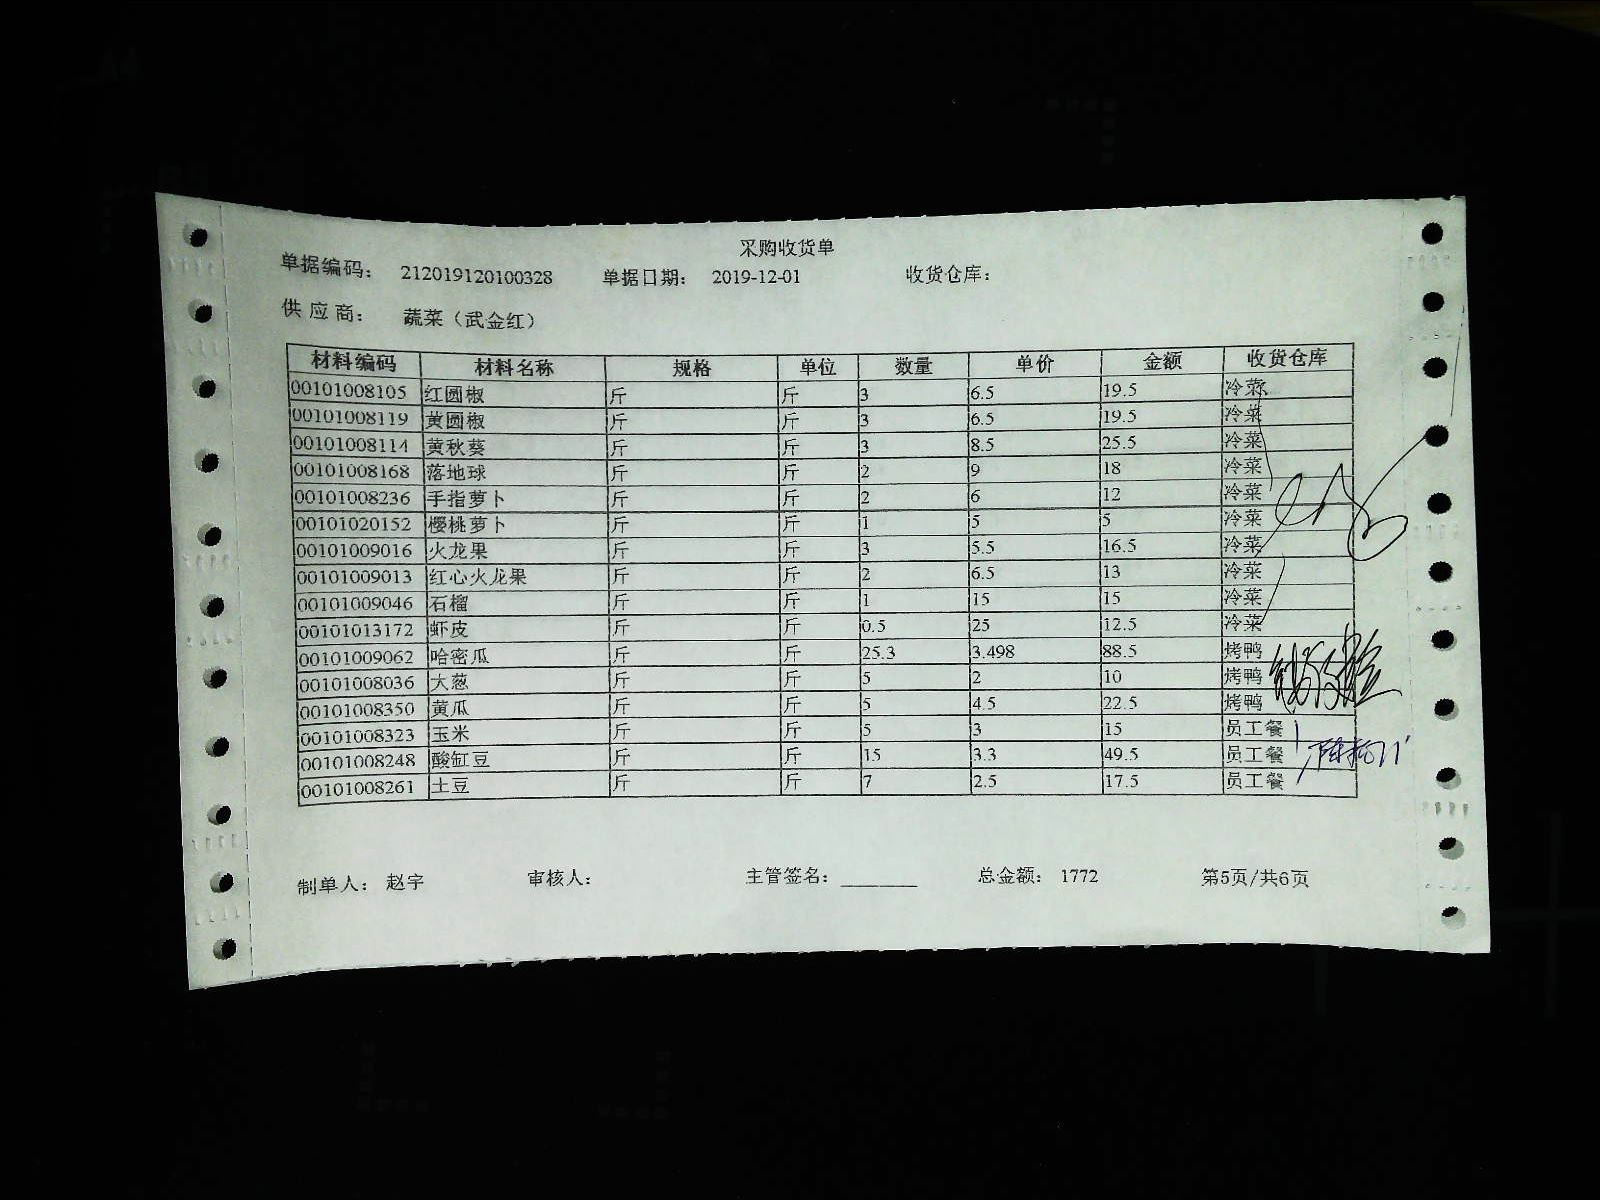 采购收货单
单据编码： 212019120100328 单据日期： 2019-12-01 收货仓库：
供应商： 蔬菜（武金红）
材料编码 材料名称 规格 单位 数量 单价 金额 收货仓库
00101008105 红圆椒 斤 斤 3 6.5 19.5 冷菜
00101008119 黄圆椒 斤 斤 3 6.5 19.5 冷菜
00101008114 黄秋葵 斤 斤 3 8.5 25.5 冷菜
00101008168 落地球 斤 斤 2 9 18 冷菜
00101008236 手指萝卜 斤 斤 2 6 12 冷菜
00101020152 樱桃萝卜 斤 斤 1 5 5 冷菜
00101009016 火龙果 斤 斤 3 5.5 16.5 冷菜
00101009013 红心火龙果 斤 斤 2 6.5 13 冷菜
00101009046 石榴 斤 斤 1 15 15 冷菜
00101013172 虾皮 斤 斤 0.5 25 12.5 冷菜
00101009062 哈密瓜 斤 斤 25.3 3.498 88.5 烤鸭
00101008036 大葱 斤 斤 5 2 10 烤鸭
00101008350 黄瓜 斤 斤 5 4.5 22.5 烤鸭
00101008323 玉米 斤 斤 5 3 15 员工餐
00101008248 酸缸豆 斤 斤 15 3.3 49.5 员工餐
00101008261 土豆 斤 斤 7 2.5 17.5 员工餐
制单人： 赵宇 审核人： 主管签名： 总金额： 1772 第5页/共6页